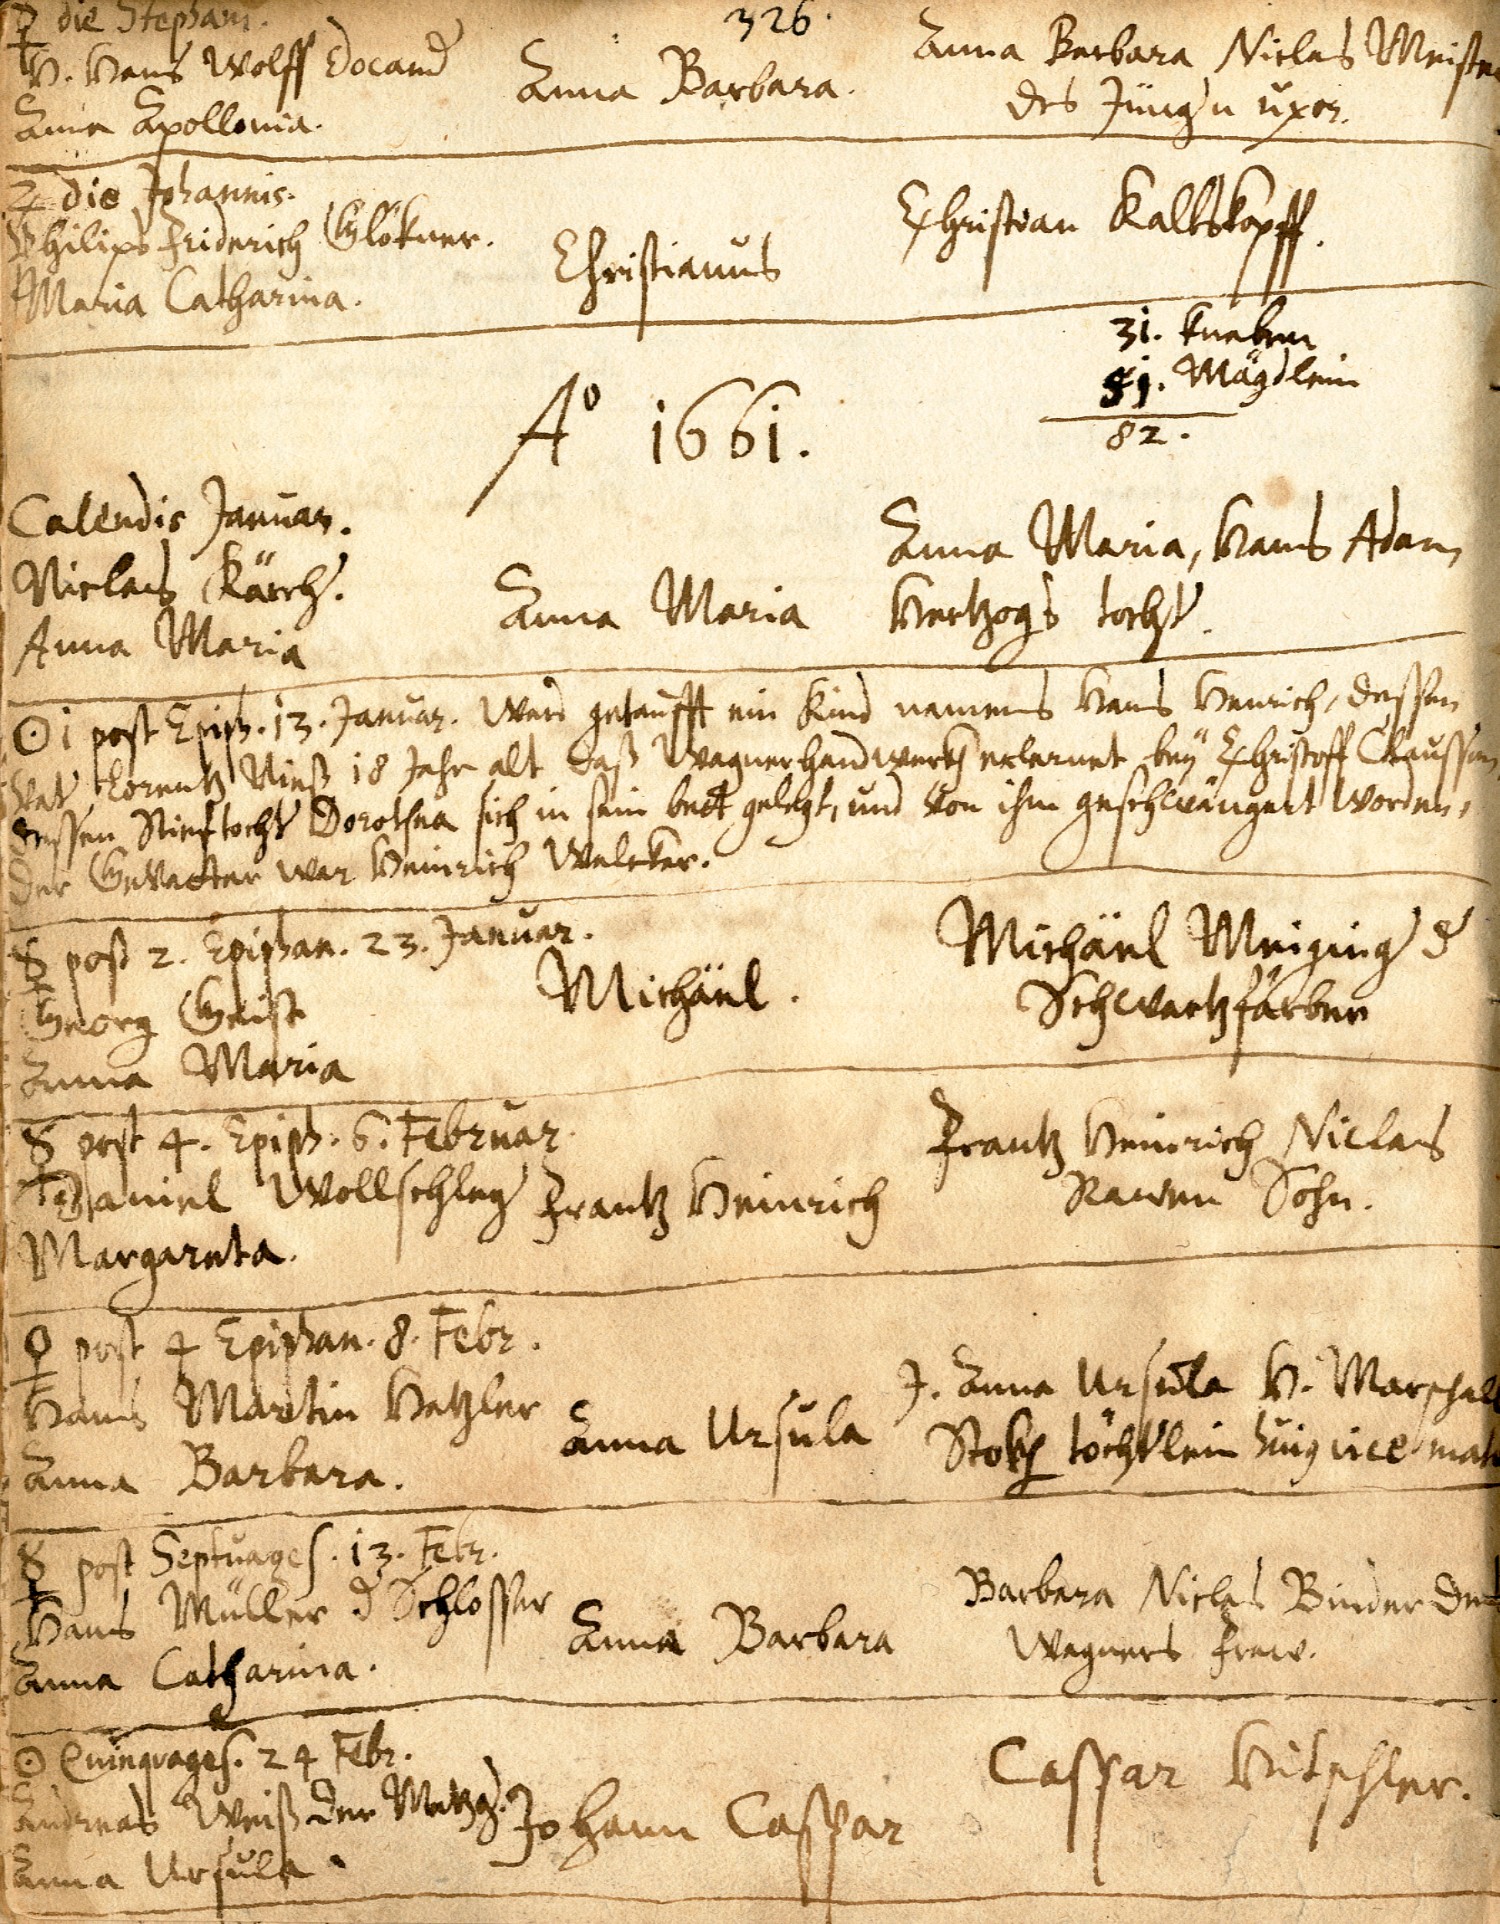 326.
♀ die Stephani.
H. Hans Wolff Edocand
Anna Apollonia.
Anna Barbara.
Anna Barbara Niclas Meister
des Jüngn uxor.
♃ die Johannis.
Philips Friderich Glökner.
Maria Catharina.
Christianus
Christian Kalbskopff.
31. Knaben
51. Mägdlein
82.
Aº 1661.
Calendis Januar.
Niclaus Kärch.
Anna Maria
Anna Maria
Anna Maria, Hans Adam
Hertzogs tocht.
☉ 1 post Epiph. 13. Januar. Ward getaufft ein Kind namens Hans Henrich, dessen
Vat Lorentz Nieß 18 Jahr alt daß Wagnerhandwerk erlernet beÿ Christoff Claussen,
dessen Stieftocht Dorothea sich in sein bett gelegt, und von ihm geschwängert worden,
der Gevatter war Heinrich Welcker.
☿ post 2. Epiphan. 23. Januar.
Georg Geist
Anna Maria
Michäel.
Michäel Meiging d
Schwartzfärber
☿ post 4. Epiph. 6. Februar
Daniel Wollschleg
Margareta.
Frantz Heinrich
Frantz Heinrich Niclaus
Rawen Sohn.
♀ post 4 Epiphan. 8. Febr.
Hans Martin Hetzler
Anna Barbara.
Anna Ursula
J. Anna Ursula H. Marschall
Stok töchtlein vice mat
☿ post Septuages. 13. Febr.
Hans Müller d Schlosser
Anna Catharina.
Anna Barbara
Barbara Niclas Binder des
Wagners fraw.
☉ Quinquages. 24 Febr.
Andreas Weiß der Metzg.
Anna Ursula.
Johann Caspar
Caspar Hitschler.